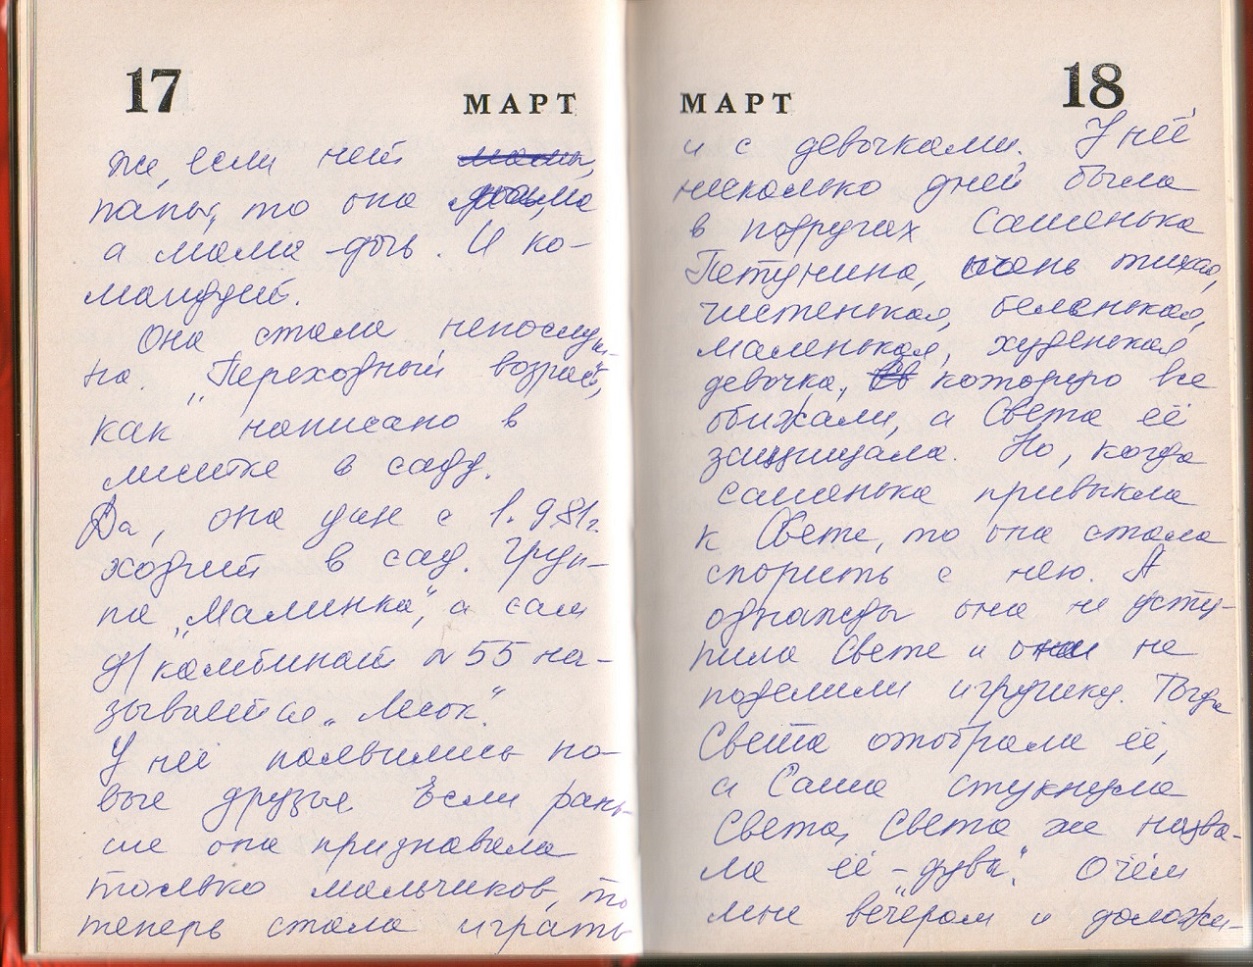 17 МАРТ
же, если нет мамы,
папы, то она мама
а мама - дочь. И ко-
мандует.
Она стала непослуш-
на. "Переходный возраст",
как написано в
листке в саду.
Да, она уже с 1.9.81г.
ходит в сад. Груп-
па "Малинка", а сам
д/комбинат №55 на-
зывается "Лесок".
У неё появились но-
вые друзья Если рань-
ше она признавала
только мальчиков, то
теперь стала играть
МАРТ 18
и с девочками. У неё
несколько дней была
в подругах Сашенька
Петунина, очень тихая,
чистенькая, беленькая,
маленькая, худенькая
девочка, которую все
обижали, а Света её
защищала. Но, когда
Сашенька привыкла
к Свете, то она стала
спорить с нею. А
однажды она не усту-
пила Свете и они не
поделили игрушку. Тогда
Света отобрала её,
а Саша стукнула
Света, Света же назва-
ла её - "дура". О чём
мне вечером и доложи-